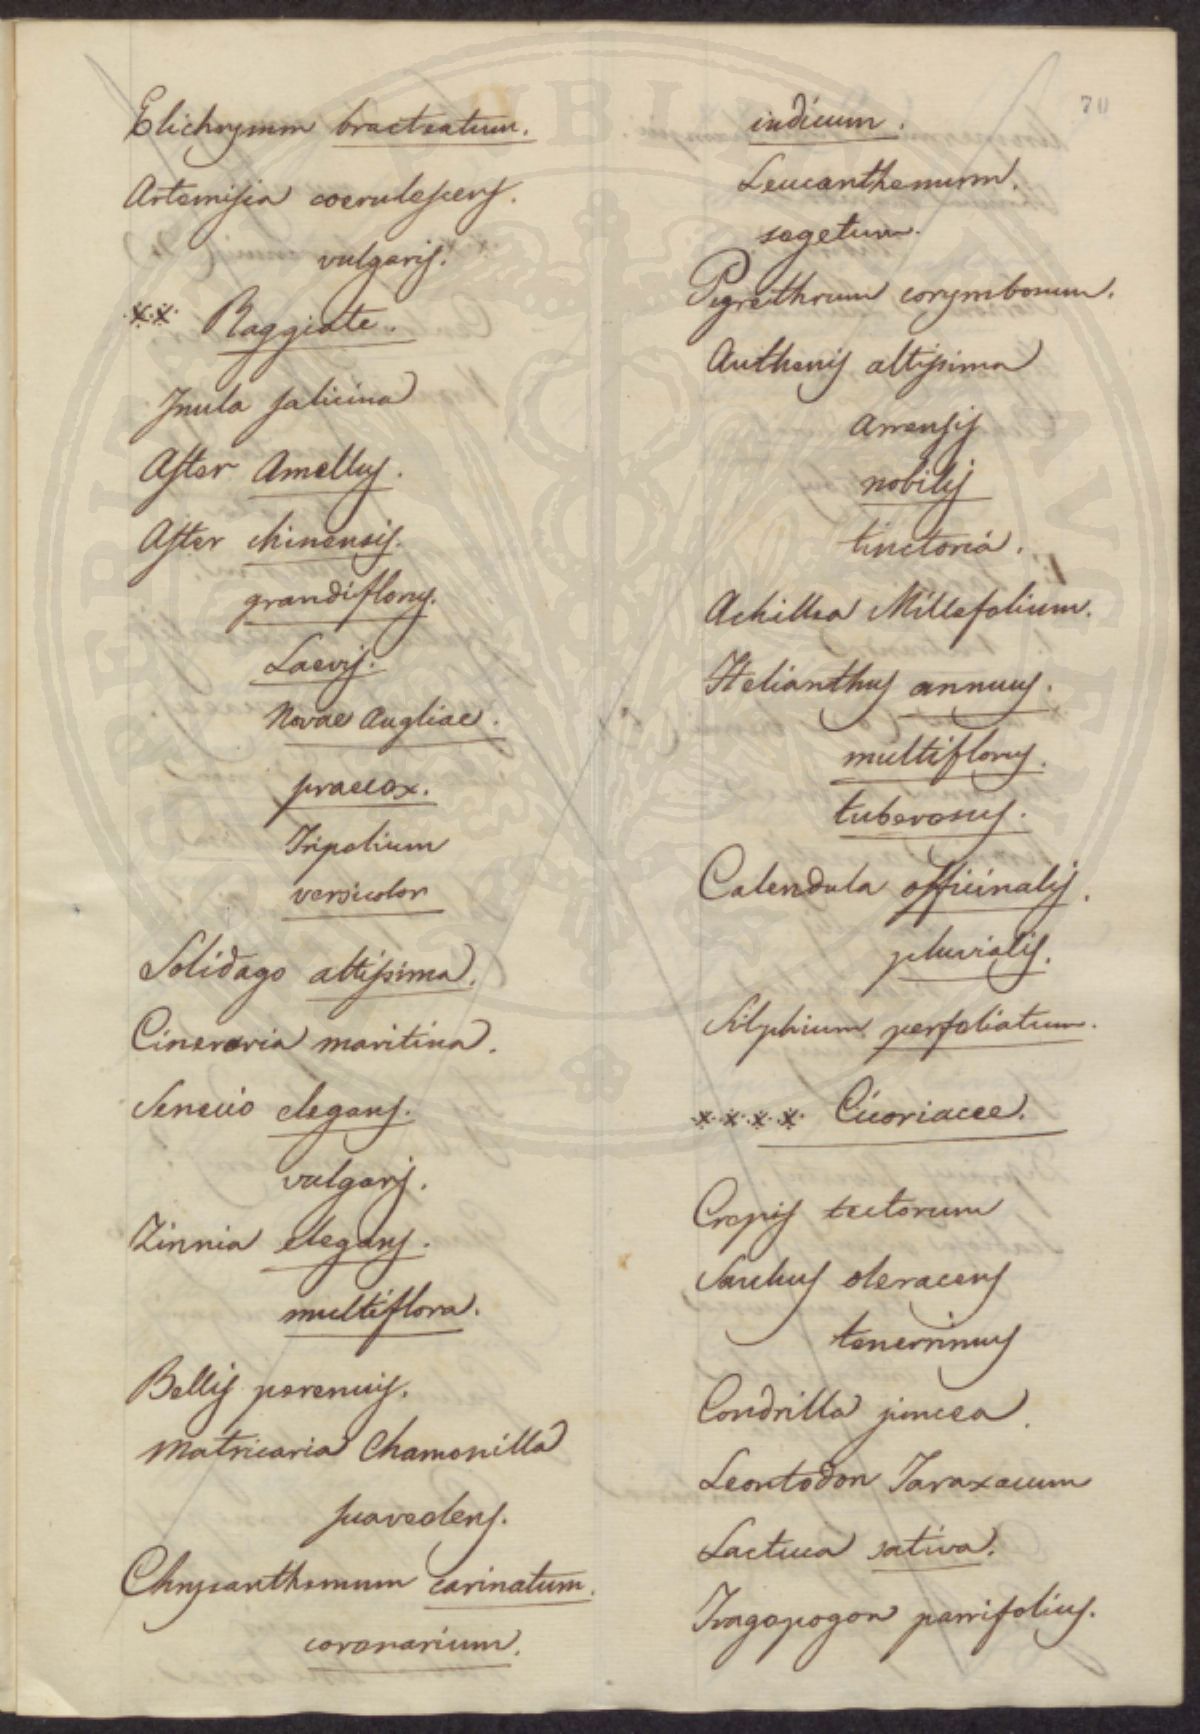 70
Elichrysum bracteatum.
Artemisia coerulescens.
vulgaris.
** Raggiate.
Inula salicina
Aster Amellus.
Aster chinensis.
grandiflorus.
Laevis.
Novae Angliae.
praecox.
Tripolium
versicolor
Solidago altissima.
Cineraria maritima.
Senecio elegans.
vulgaris.
Zinnia elegans.
multiflora.
Bellis perennis.
Matricaria Chamomilla
suaveolens.
Chrysanthemum carinatum.
coronarium.
indicum.
Leucanthemum.
segetum.
Pyrethrum corymbosum.
Anthemis altissima
arvensis
nobilis
tinctoria.
Achillea Millefolium.
Helianthus annuus.
multiflorus.
tuberosus.
Calendula officinalis.
pluvialis.
Silphium perfoliatum.
**** Cicoriacee.
Crepis tectorum
Sonchus oleraceus
tenerrimus
Condrilla juncea.
Leontodon Taraxacum
Lactuca sativa.
Tragopogon porrifolius.